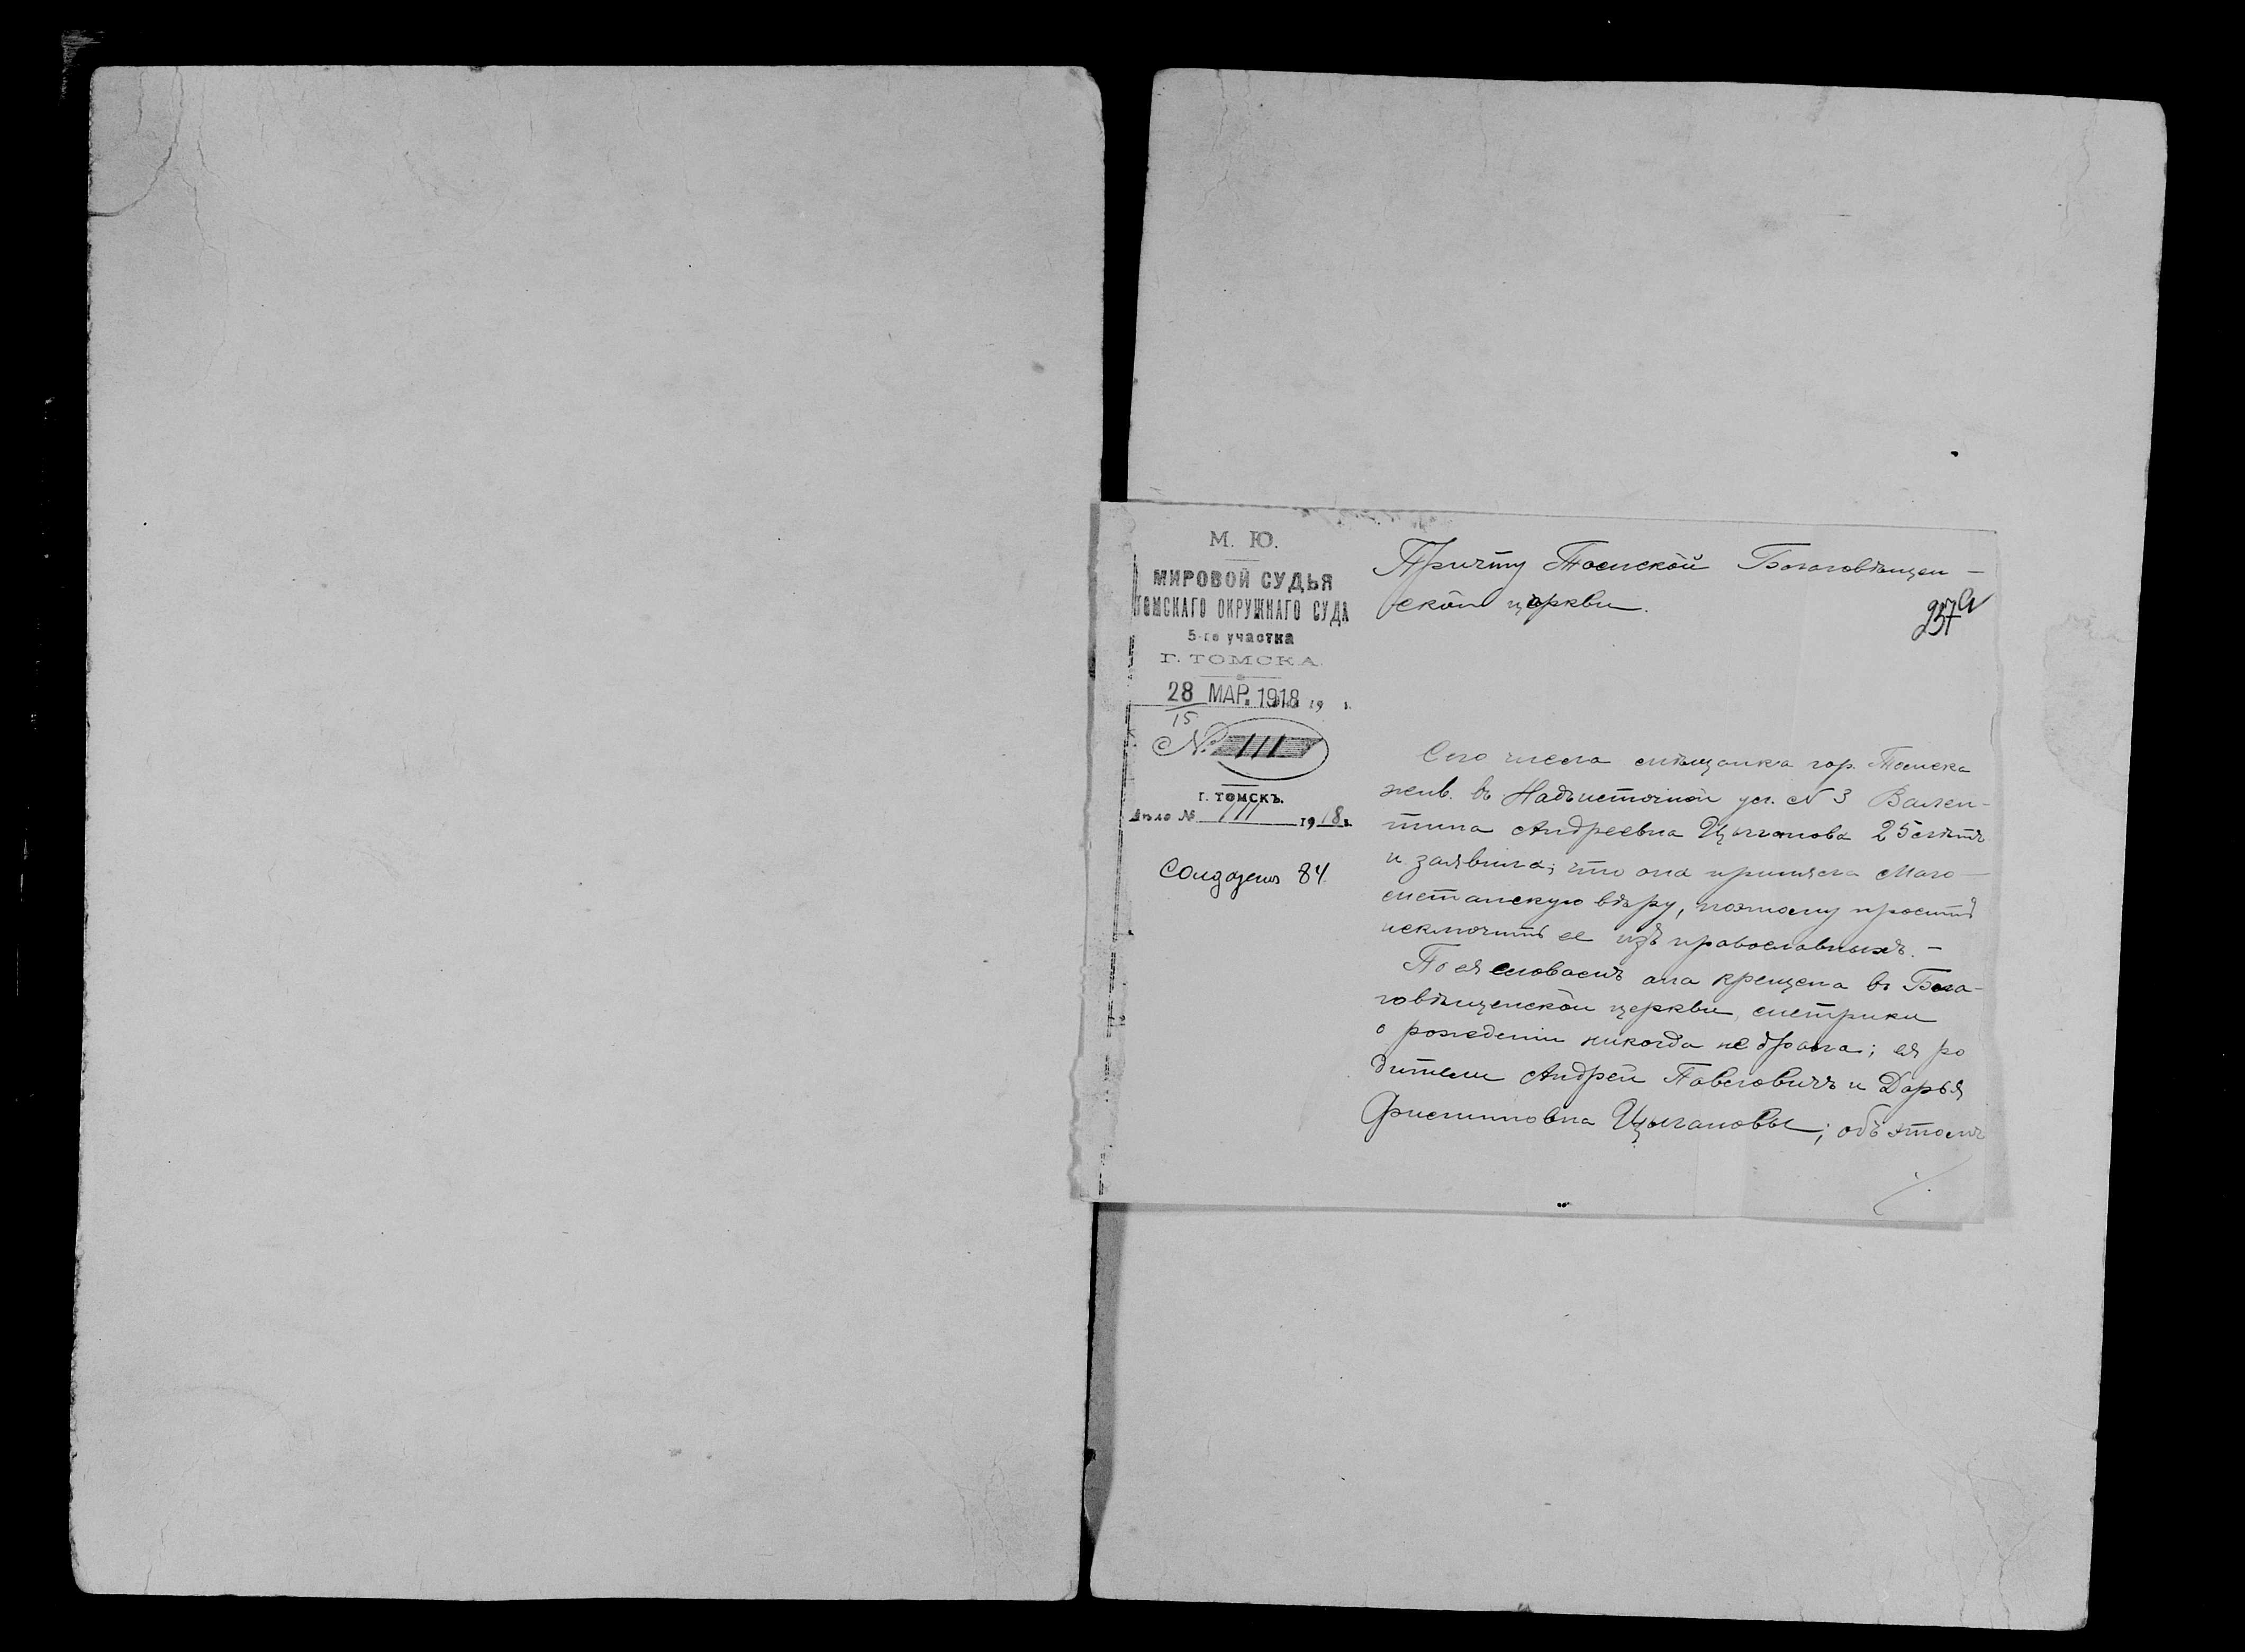 М. Ю.
МИРОВОЙ СУДЬЯ
ТОМСКАГО ОКРУЖНАГО СУДА
5-го участка
Г. ТОМСКА
28 МАР. 1918 19 г.
15
№ 111
Г. ТОМСКЪ.
Дѣло № 111 1918 г.
84
Причту Томской Благовѣщен-
ской церкви.
237а
Сего числа мѣщанка гор. Томска
жив. въ Надъисточной ул. № 3 Вален-
тина Андреевна Цыганова 25 лѣтъ
и заявила, что она приняла Маго-
метанскую вѣру, поэтому проситъ
исключить ее изъ православныхъ. -
По ея словамъ она крещена въ Бла-
говѣщенской церкви, метрики
о рожденіи никогда не брала; ея ро
дители Андрей Павловичъ и Дарья
Цыгановы; объ этомъ
./.